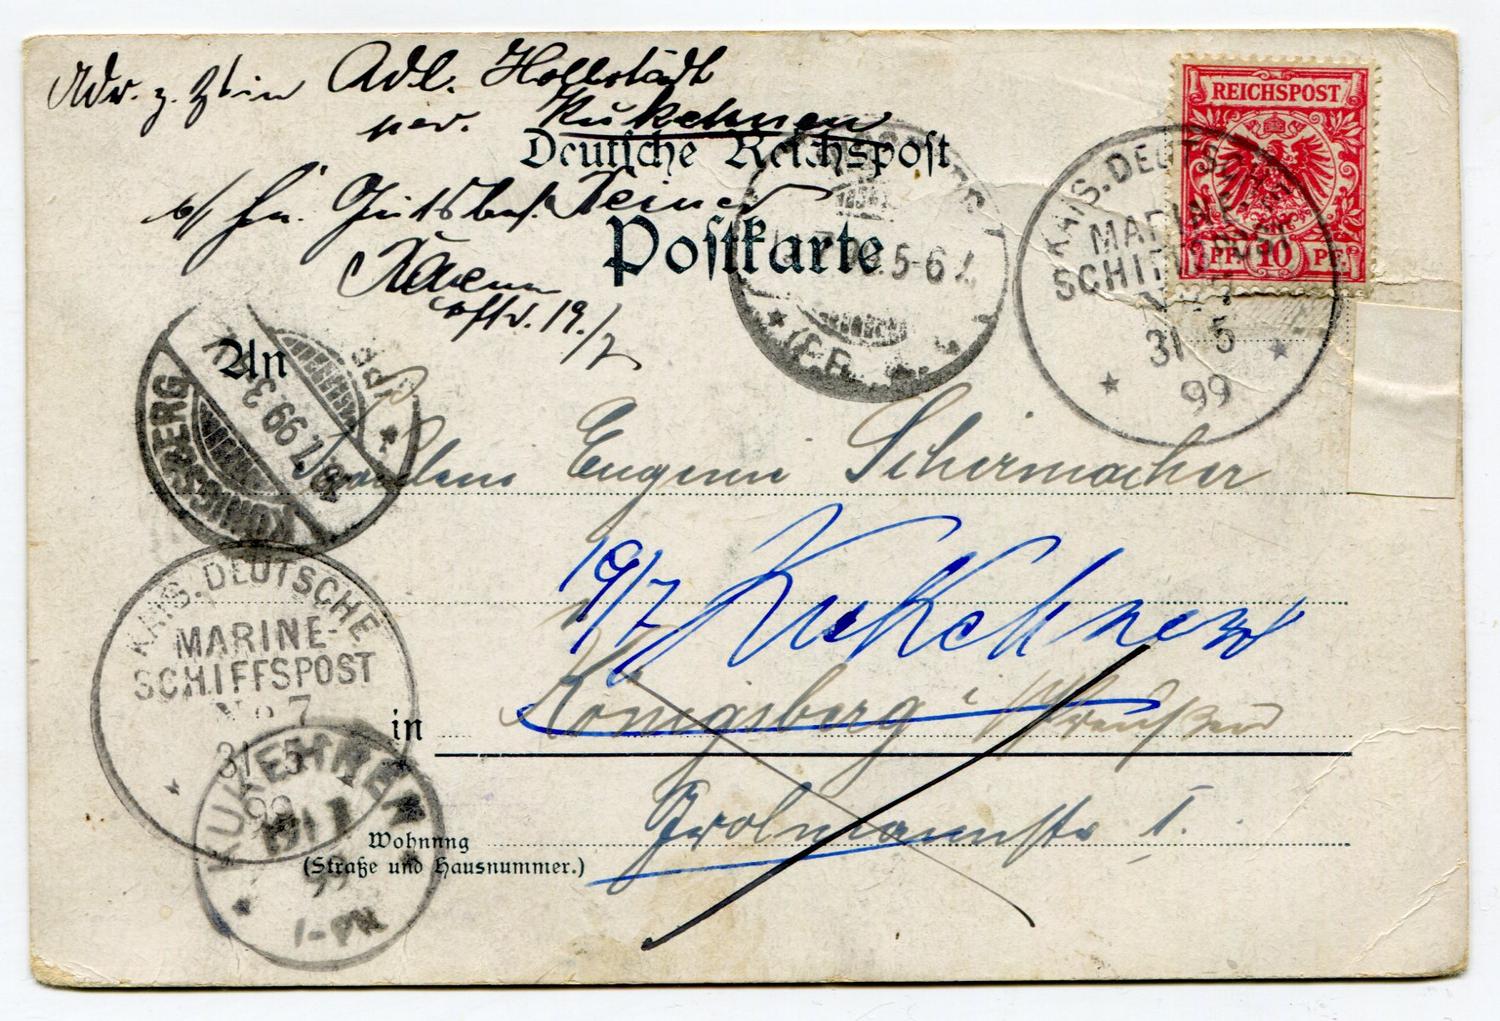 Adr. z. Zt in Adl. Hollstädt
per. Kukehnen
Deutsche Reichspost
Postkarte
19./7
An
Eugenie Schirmacher
19/7 Kukehnen
in Königsberg i/Preußen
Grolmannstr. 1.
Wohnung
(Straße und Hausnummer.)
REICHSPOST
PF. 10 PF.
KAIS. DEUTSCHE
MARINE-
SCHIFFSPOST
No 7
31 5
99
5-6
KÖNIGSBERG
18.7.99.3-
KAIS. DEUTSCHE
MARINE-
SCHIFFSPOST
No 7
31 5
99
KUKEHNEN
99